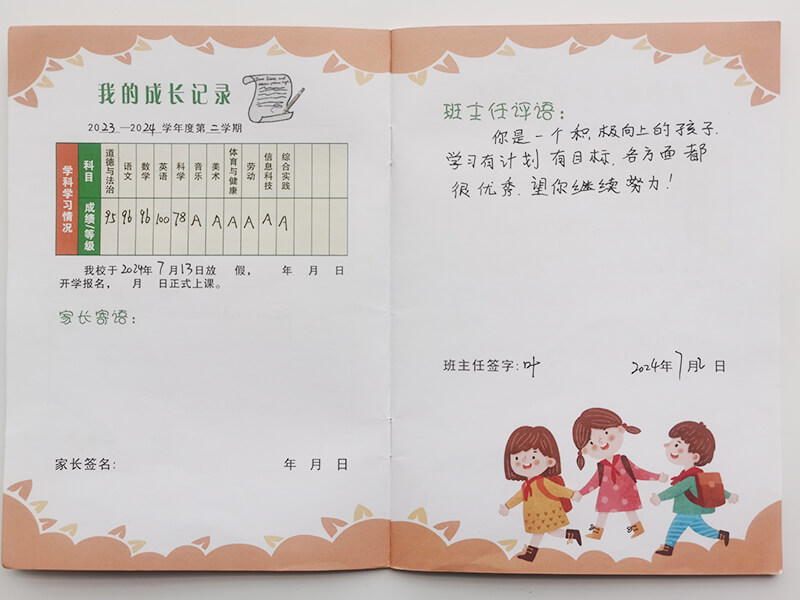 我的成长记录
2023—2024学年度第二学期
学科学习情况
科目 道德与法治 语文 数学 英语 科学 音乐 美术 体育与健康 劳动 信息科技 综合实践
成绩/等级 95 96 96 100 78 A A A A A A
我校于2024年7月13日放 假， 年 月 日
开学报名， 月 日正式上课。
家长寄语：
家长签名： 年 月 日
班主任评语：
你是一个积极向上的孩子.
学习有计划 有目标. 各方面都
很优秀. 望你继续努力!
班主任签字:叶 2024年7月 日